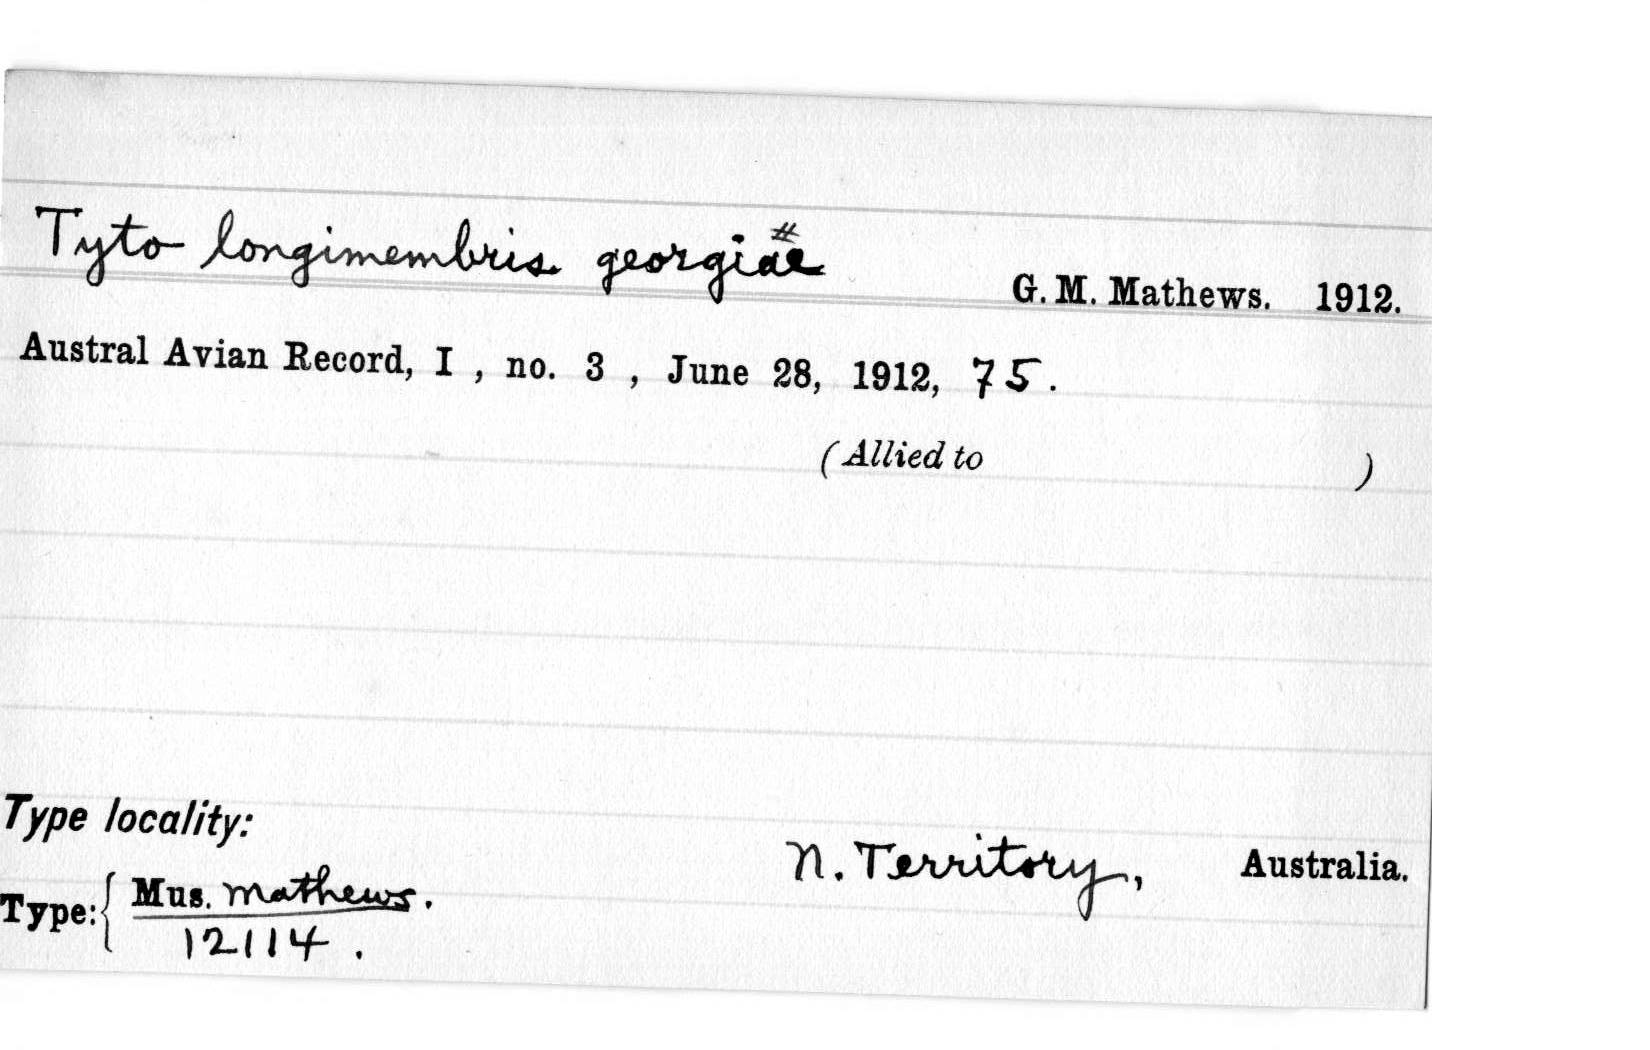 Tyto longimembris georgiae # G. M. Mathews. 1912.
Austral Avian Record, I , no. 3 , June 28, 1912, 75.
(Allied to )
Type locality:
N. Territory, Australia.
Type: { Mus. Mathews.
12114 .